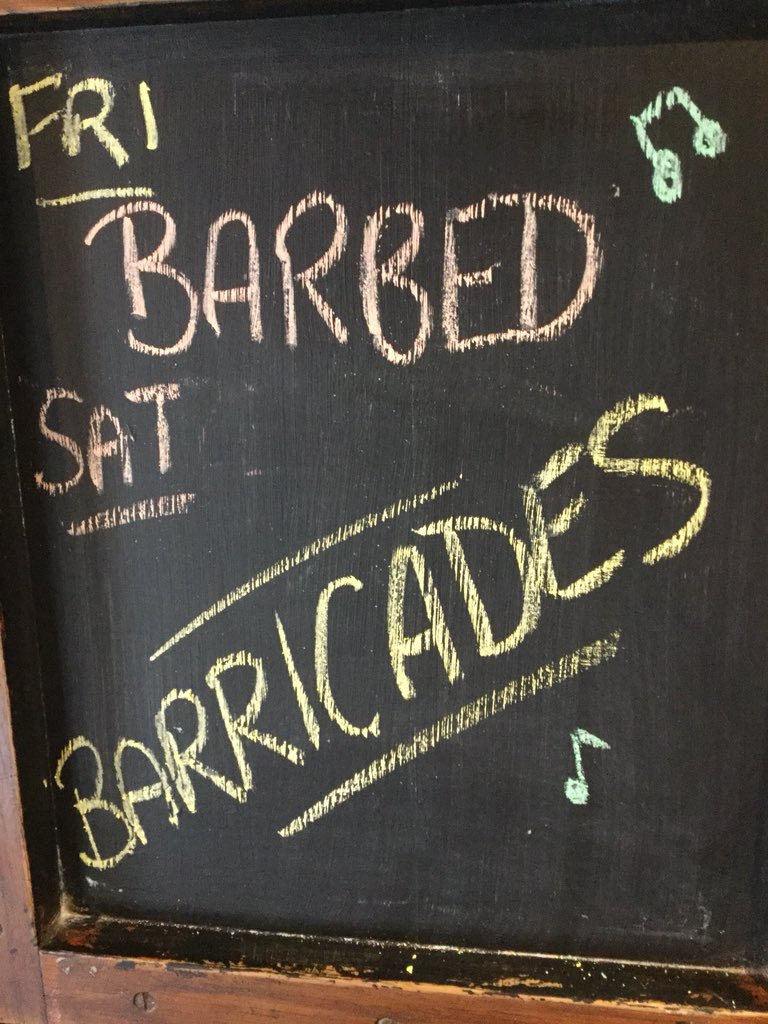 FRI
BARBED
SAT
BARRICADES